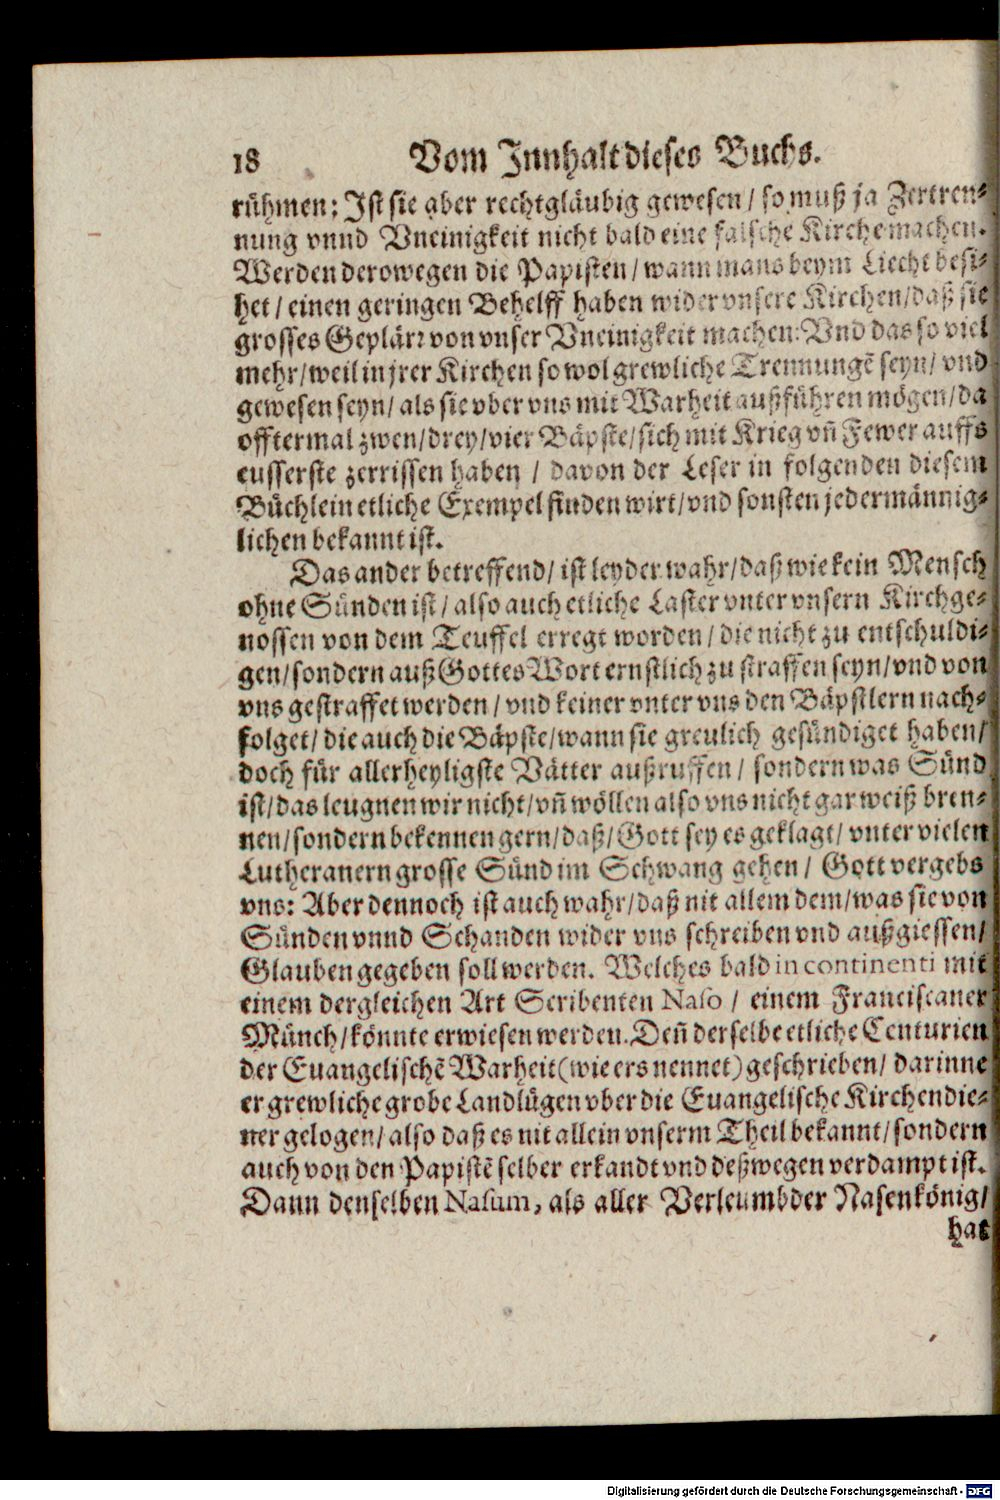 18 Vom Innhalt dieses Buchs.
rühmen: Ist sie aber rechtgläubig gewesen / so muß ja Zertren-
nung vnnd Vneinigkeit nicht bald eine falsche Kirche machen.
Werden derowegen die Papisten / wann mans beym Liecht besi-
het / einen geringen Behelff haben wider vnsere Kirchen / daß sie
grosses Geplärr von vnser Vneinigkeit machen: Vnd das so viel
mehr / weil in jrer Kirchen so wol grewliche Trennungẽ seyn / vnd
gewesen seyn / als sie vber vns mit Warheit außführen mögen / da
offtermal zwen / drey / vier Bäpste / sich mit Krieg vñ Fewer auffs
eusserste zerrissen haben / davon der Leser in folgenden diesem
Büchlein etliche Exempel finden wirt / vnd sonsten jedermännig-
lichen bekannt ist.
Das ander betreffend / ist leyder wahr / daß wie kein Mensch
ohne Sünden ist / also auch etliche Laster vnter vnsern Kirchge-
nossen von dem Teuffel erregt worden / die nicht zu entschuldi-
gen / sondern auß Gottes Wort ernstlich zu straffen seyn / vnd von
vns gestraffet werden / vnd keiner vnter vns den Bäpstlern nach-
folget / die auch die Bäpste / wann sie greulich gesündiget haben /
doch für allerheyligste Vätter außruffen / sondern was Sünd
ist / das leugnen wir nicht / vñ wöllen also vns nicht gar weiß bren-
nen / sondern bekennen gern / daß / Gott sey es geklagt / vnter vielen
Lutheranern grosse Sünd im Schwang gehen / Gott vergebs
vns: Aber dennoch ist auch wahr / daß nit allem dem / was sie von
Sünden vnnd Schanden wider vns schreiben vnd außgiessen /
Glauben gegeben soll werden. Welches bald in continenti mit
einem dergleichen Art Scribenten Naso / einem Franciscaner
Münch / könnte erwiesen werden. Deñ derselbe etliche Centurien
der Euangelischẽ Warheit (wie ers nennet) geschrieben / darinne
er grewliche grobe Landlügen vber die Euangelische Kirchendie-
ner gelogen / also daß es nit allein vnserm Theil bekannt / sondern
auch von den Papistẽ selber erkandt vnd deßwegen verdampt ist.
Dann denselben Nasum, als aller Verleumbder Nasenkönig /
hat
Digitalisierung gefördert durch die Deutsche Forschungsgemeinschaft - DFG